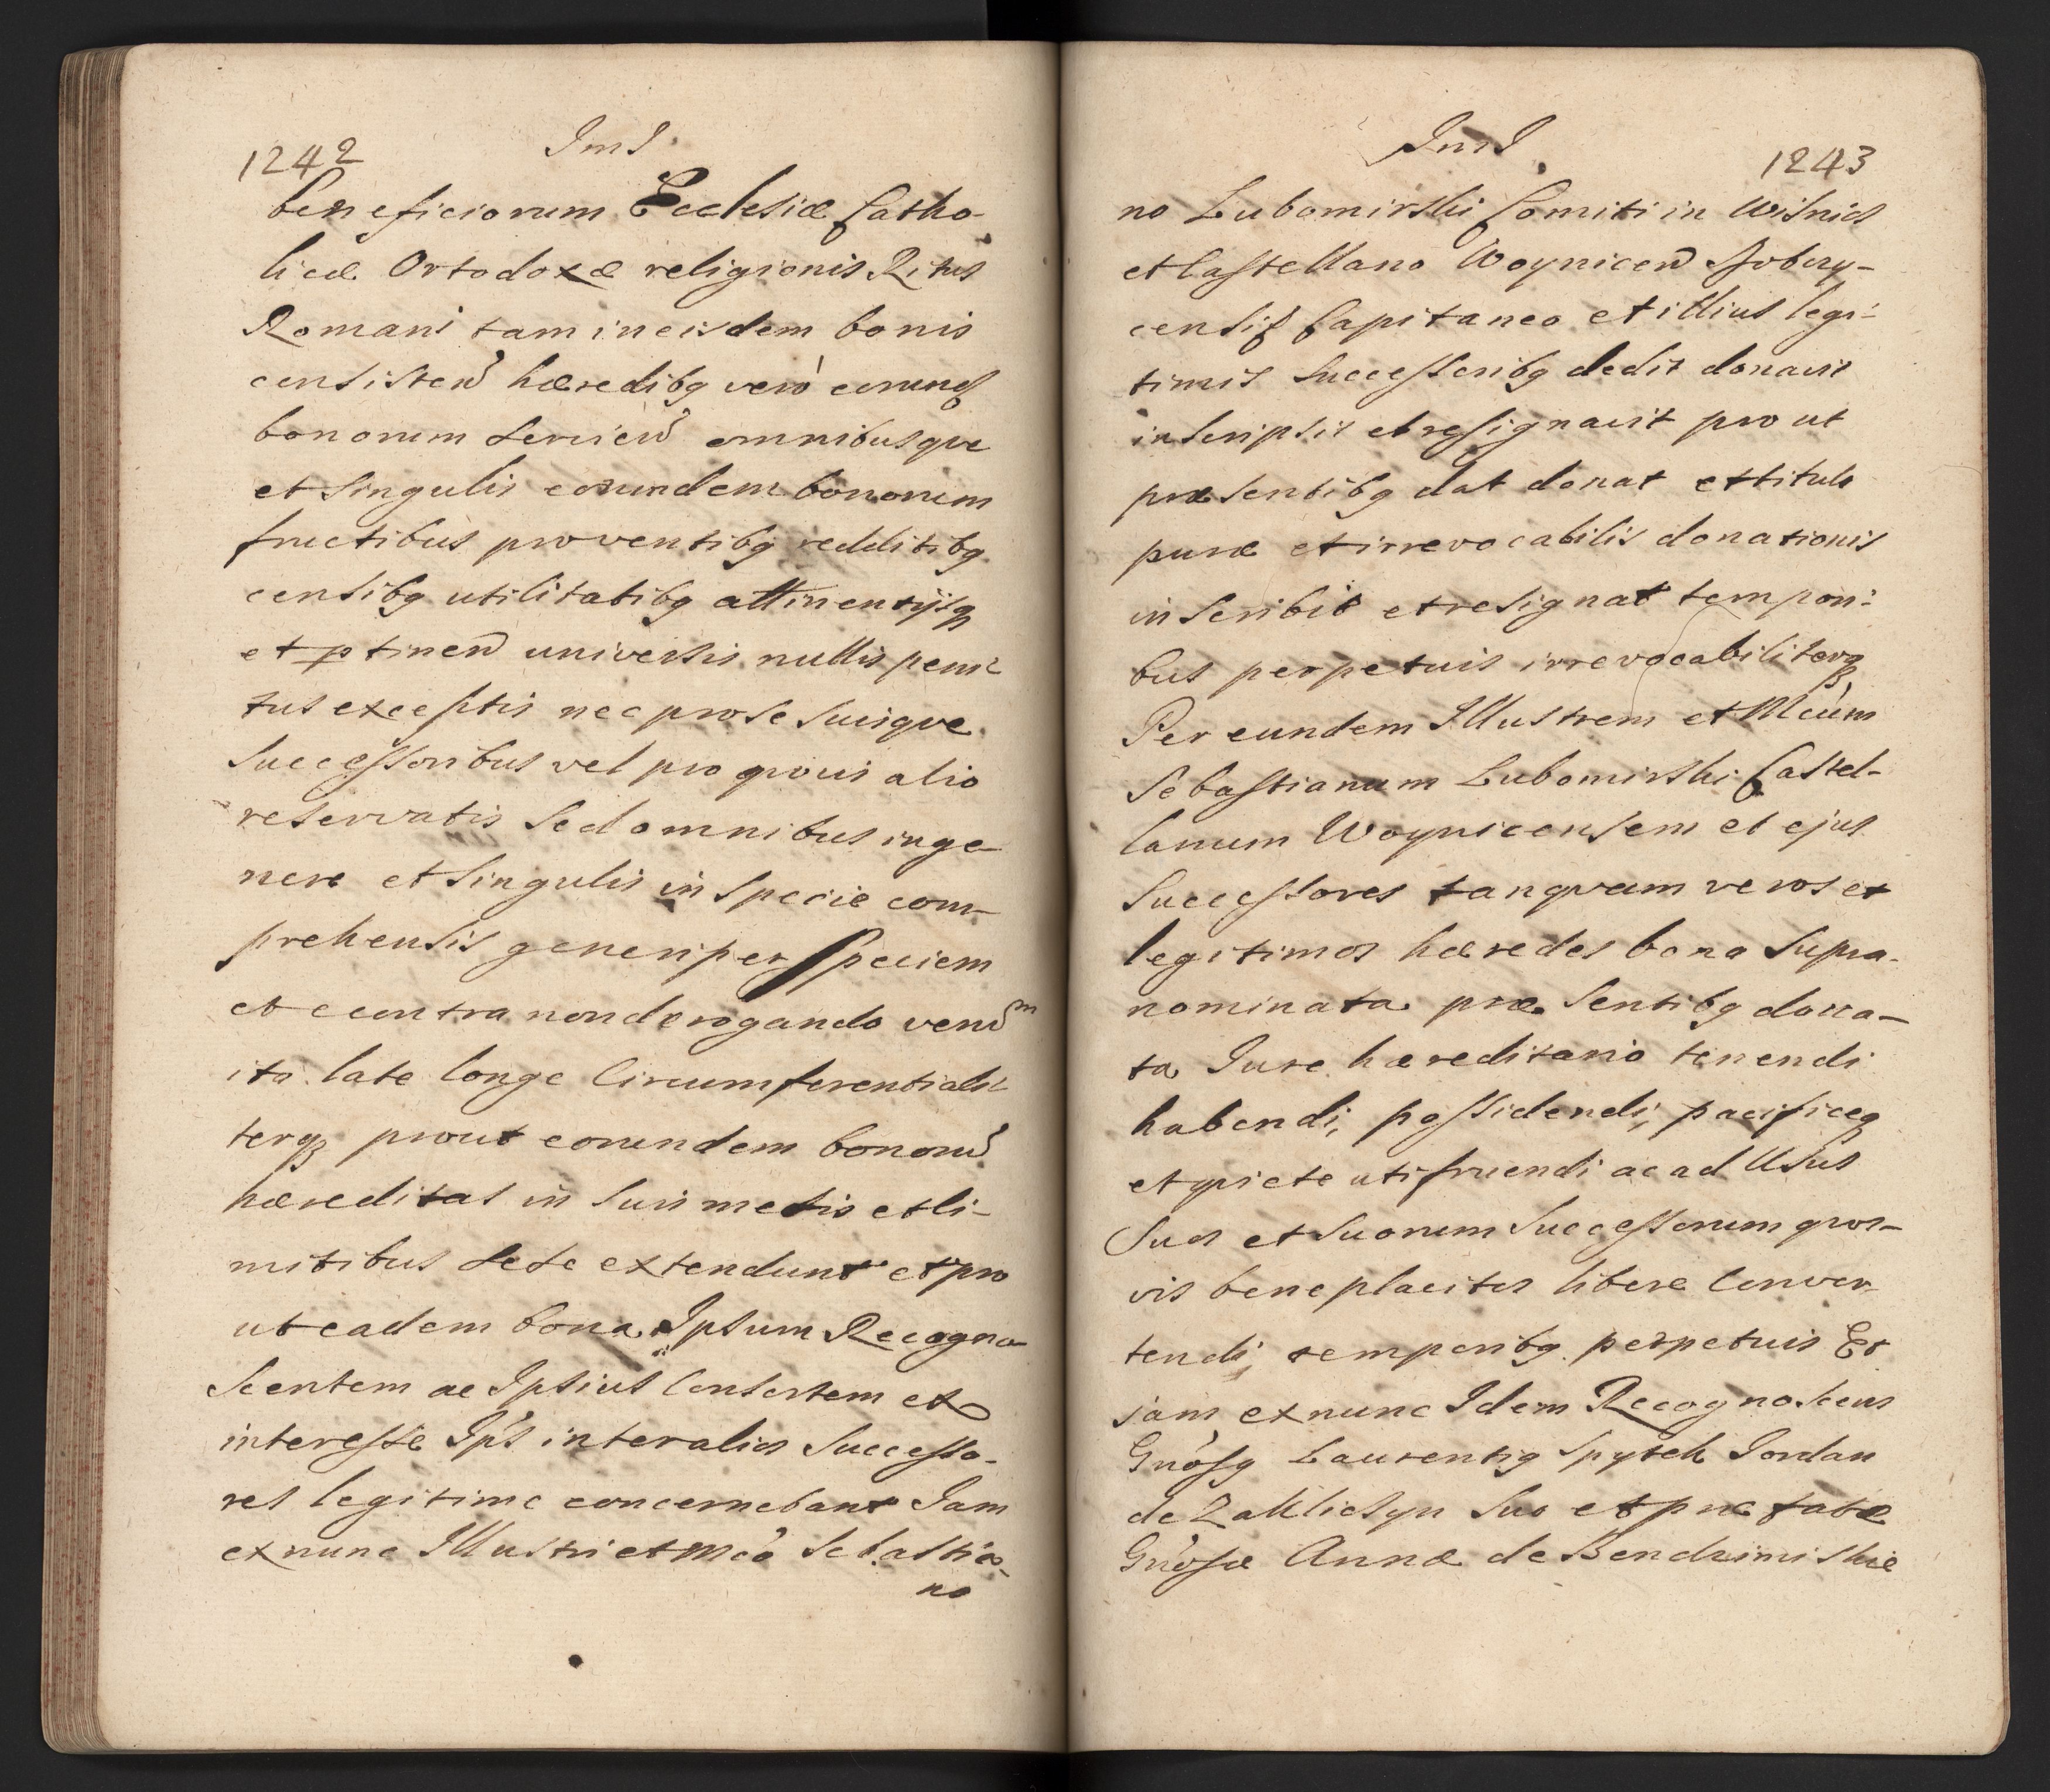 1242
JmJ
beneficiorum Ecclesiæ Catho-
licæ Ortodoxæ religionis Ritus
Romani tam in eisdem bonis
consisten hæredibq vero eorunq
bonorum servien omnibusqve
et singulis eorundem bonorum
fructibus proventibq redditibq
censibq utilitatibq attinentijsq
et ptinen universis nullis peni-
tus exceptis nec pro se suisqve
Successoribus vel pro qvovis alio
reservatis Sed omnibus inge-
nere et singulis in specie com-
prehensis generi per Speciem
et e contra non derogando verum
ita late longe Circumferentiali-
terq prout eorundem bonoru
hæreditas in suis metis et li-
mitibus sese extendunt et pro
ut eadem bona Ipsum Recogno
scentem ac Ipsius Consortem et
interesse Ips inter alios Successo-
res legitime concernebant Jam
ex nunc Illustri et Mco Sebastia-
no
JmJ
1243
no Lubomirski Comiti in Wisnics
et Castellano Woynicen Dobczy-
censiq Capitaneo et illius legi-
timis Successoribq dedit donavit
inscripsit et resignavit pro ut
præsentibq dat donat et titulo
puræ et irrevocabilis donationis
inscribit et resignat tempori-
bus perpetuis irrevocabiliterq
Per eundem Illustrem et Mcum
Sebastianum Lubomirski Castel-
lanum Woynicensem et ejus
Successores tanqvam veros et
legitimos hæredes bona supra-
nominata præsentibq dona-
ta Jure hæreditario tenendi
habendi, possidendi, pacificeq
et qviete utifruendi ac ad Usus
Suos et suorum Successorum qvos-
vis beneplacitos libere Conver-
tendi, temporibq perpetuis Et
jam ex nunc Idem Recognoscens
Gnosq Laurentiq Spytek Jordan
de Zakliczyn suo et præfatæ
Gnosæ Annæ de Bendzimiskie